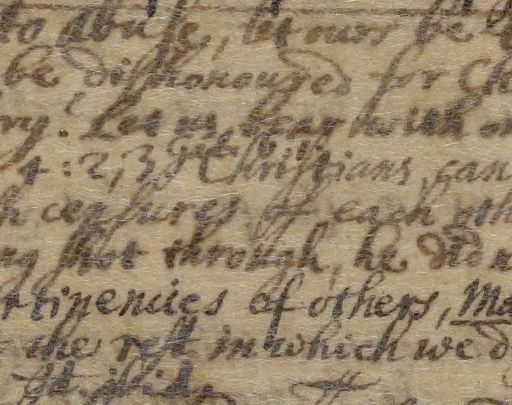 to abuse, let ours be
be dishonoured for Ch
ry. Let us bear with on
4:2,3 yt Christians can
h censures of each oth
ng shot through, he did n
rtinencies of others, Ma
the rest in which we d
ibid.